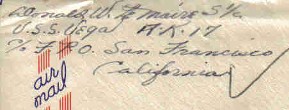 Donald W. LeMaire S 1/c
U.S.S. Vega A.K. 17
c/o F.P.O. San Francisco
California
air
mail